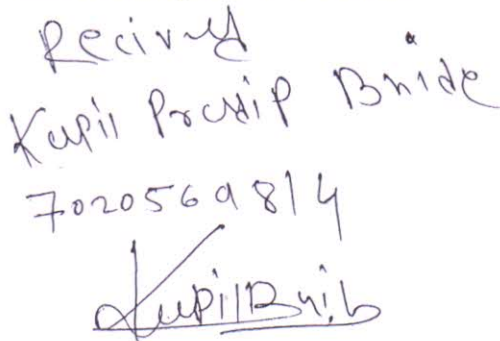 Recived
Kapil Pradip Bhide
7020569814
Kapil Bhide